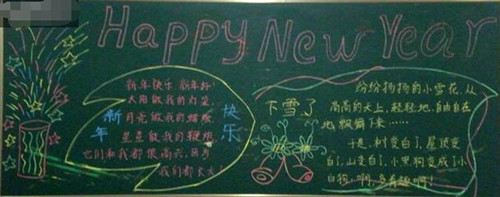 Happy New Year
新年快乐
新年快乐 新年好!
太阳做我的灯笼
月亮做我的
星星做我的鞭炮
它们和我都很高兴,因为
我们都大
下雪了
纷纷扬扬的小雪花,从
高高的天上,轻轻地,自由自在
地飘飘下来……
于是,树变白了,屋顶变
白了,山变白了,小黑狗变成了小
白狗,啊,多有趣啊!